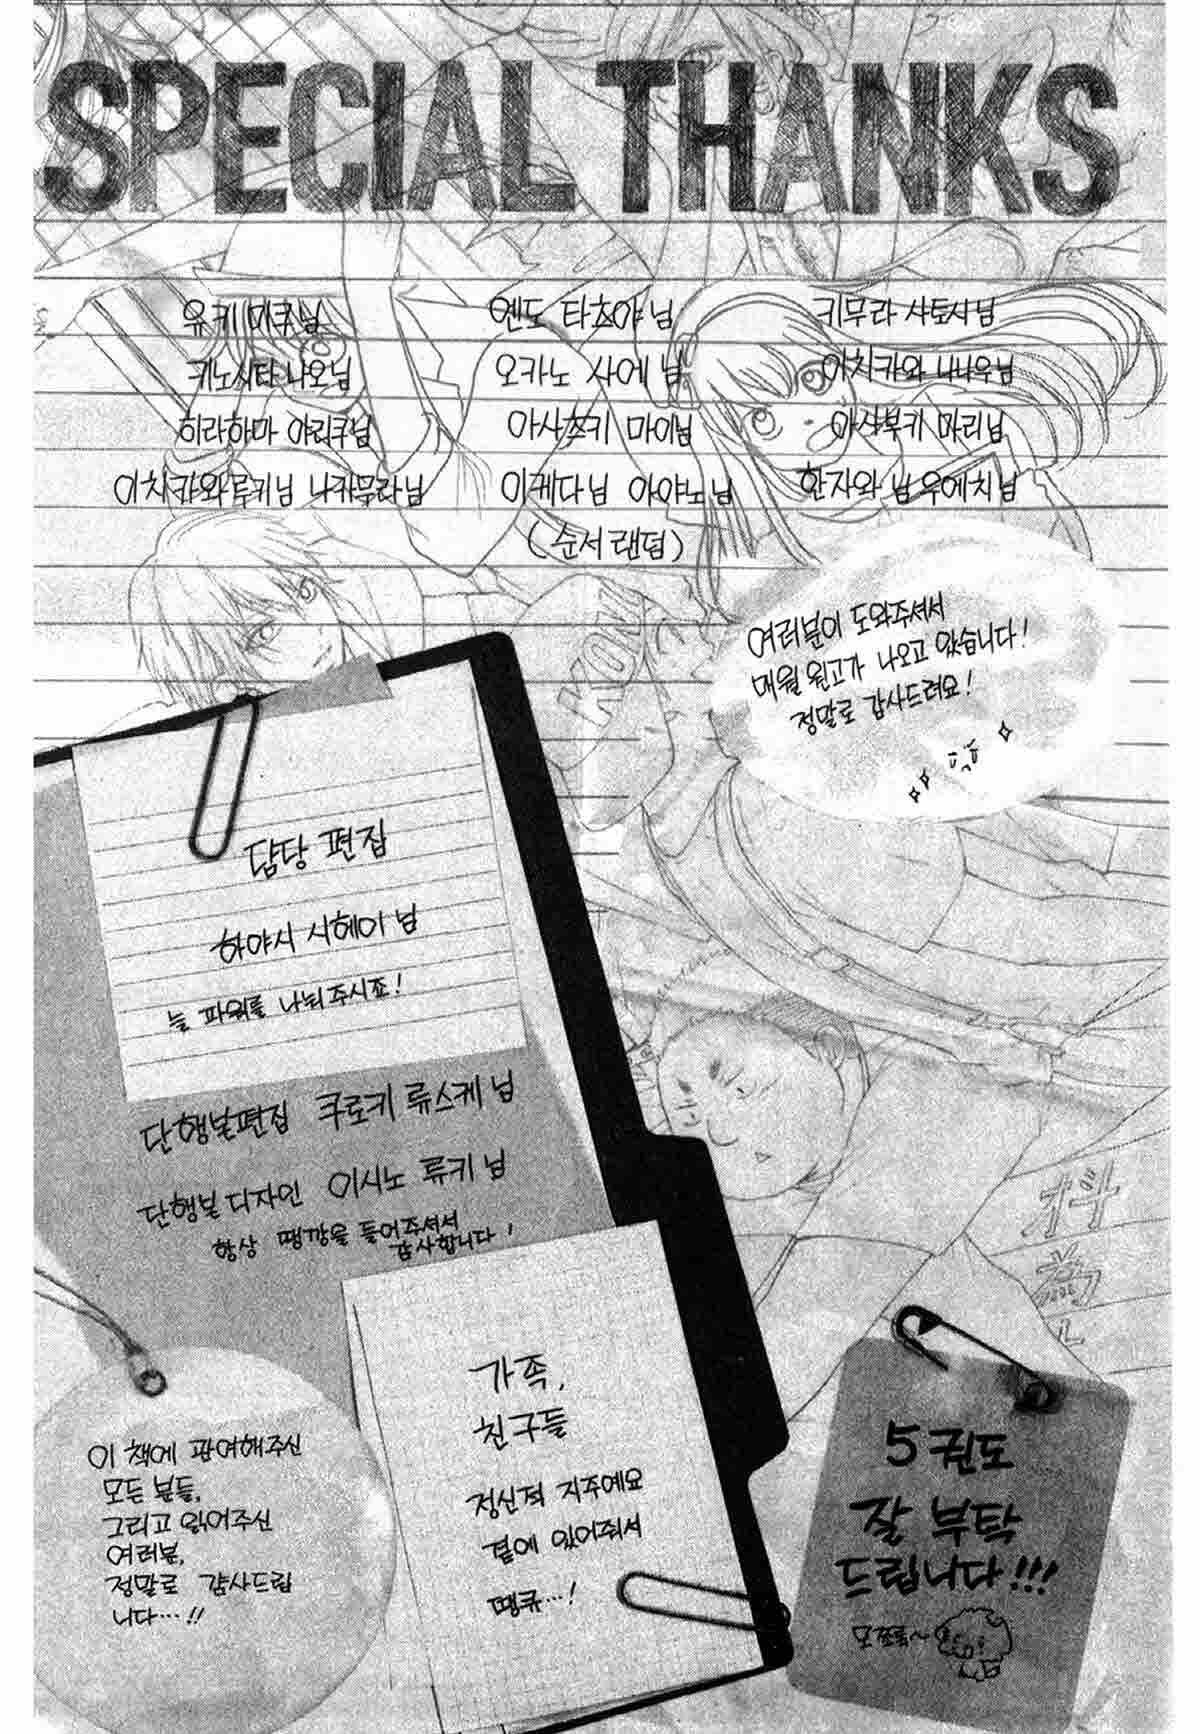 SPECIAL THANKS
유키 미쿠님 엔도 타츠야님 키무라 사토시님
키노시타 나오님 오카노 사에 님 이치카와 나나우님
히라하마 야리쿠님 아사츠키 마이님 아사부키 마리님
이치카와루키님 나카무라님 이케다님 아야노님 환자와 님 우에치님
(순서 랜덤)
여러분이 도와주셔서
매월 원고가 나오고 있습니다!
정말로 감사드려요!
담당 편집
하야시 시헤이 님
늘 파워를 나눠주시죠!
단행본편집 쿠로키 류스케 님
단행본 디자인 이시노 류키 님
항상 땡깡을 들어주셔서
감사합니다!
가족,
친구들
정신적 지주예요
곁에 있어줘서
땡큐…!
이 책에 관여해주신
모든 분들,
그리고 읽어주신
여러분,
정말로 감사드립
니다…!!
5권도
잘 부탁
드립니다!!!